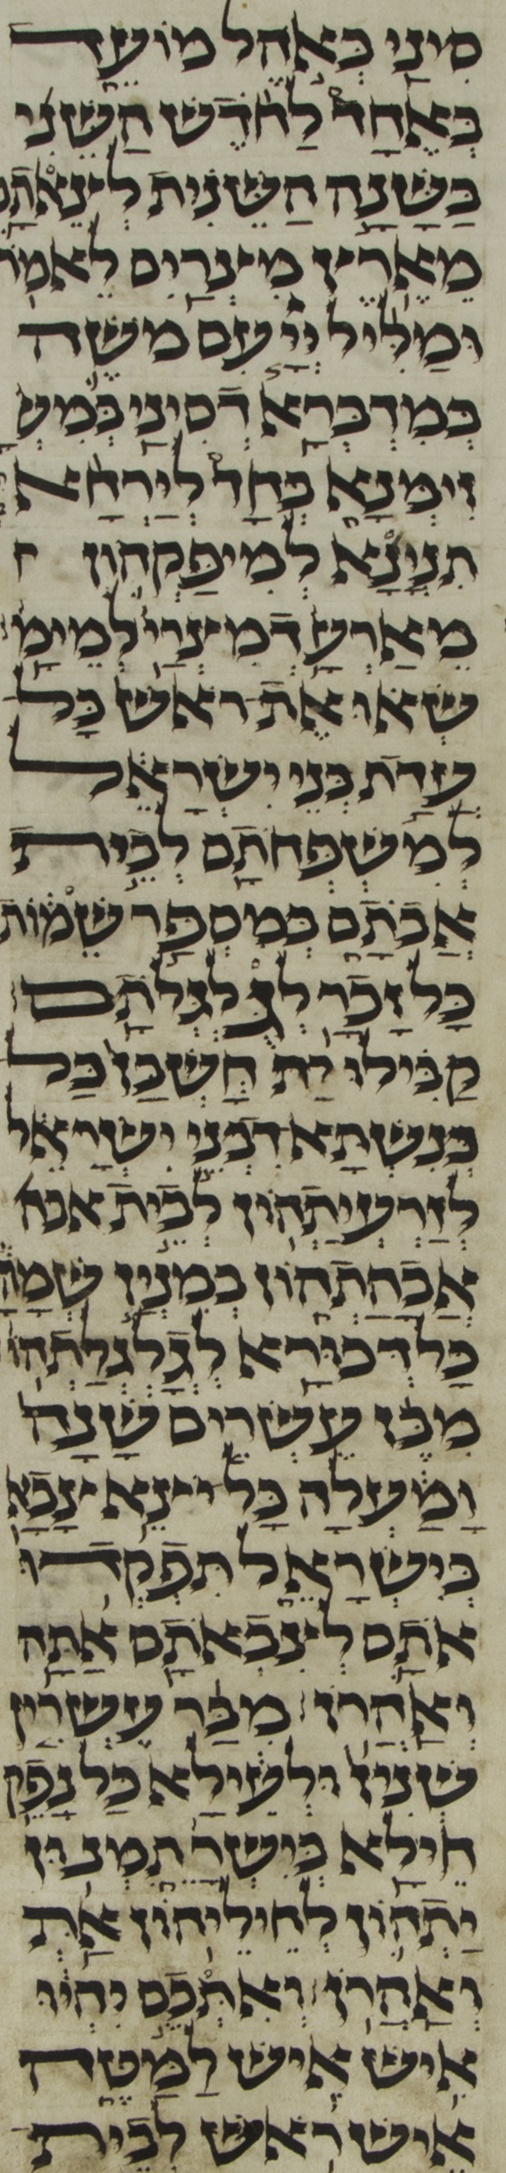 סִינַי בְּאֹהֶל מוֹעֵד
בְּאֶחָד לַחֹדֶשׁ הַשֵּׁנִי
בַּשָּׁנָה הַשֵּׁנִית לְצֵאתָם
מֵאֶרֶץ מִצְרַיִם לֵאמֹר
וּמַלִּיל יְיָ עִם מֹשֶׁה
בְּמַדְבְּרָא דְסִינַי בְּמַשׁ
זִימְנָא בְּחַד לְיַרְחָא
תִנְיָנָא לְמִיפַּקְהוֹן
מֵאַרְעָא דְמִצְרַיִ לְמֵימַ
שְׂאוּ אֶת רֹאשׁ כָּל
עֲדַת בְּנֵי יִשְׂרָאֵל
לְמִשְׁפְּחֹתָם לְבֵית
אֲבֹתָם בְּמִסְפַּר שֵׁמוֹת
כָּל זָכָר לְגֻלְגְּלֹתָם
קַבִּילוּ יָת חֻשְׁבַּן כָּל
כְּנִשְׁתָּא דִבְנֵי יִשְׂרָאֵל
לְזַרְעֲיָתְהוֹן לְבֵית אבה
אֲבָהָתְהוֹן בְּמִנְיַן שְׁמָהָ
כָּל דְּכוּרָא לְגֻלְגְּלָתְהוֹ
מִבֶּן עֶשְׂרִים שָׁנָה
וָמַעְלָה כָּל יֹצֵא צָבָא
בְּיִשְׂרָאֵל תִּפְקְדוּ
אֹתָם לְצִבְאֹתָם אַתָּה
וְאַהֲרֹן מִבַּר עֶשְׂרִין
שְׁנִין וּלְעֵילָא כָּל נָפֵק
חֵילָא בְּיִשְׂרָ תִמְנוּן
יָתְהוֹן לְחֵילֵיהוֹן אַתְּ
וְאַהֲרֹן וְאִתְּכֶם יִהְיוּ
אִישׁ אִישׁ לַמַּטֶּה
אִישׁ רֹאשׁ לְבֵית